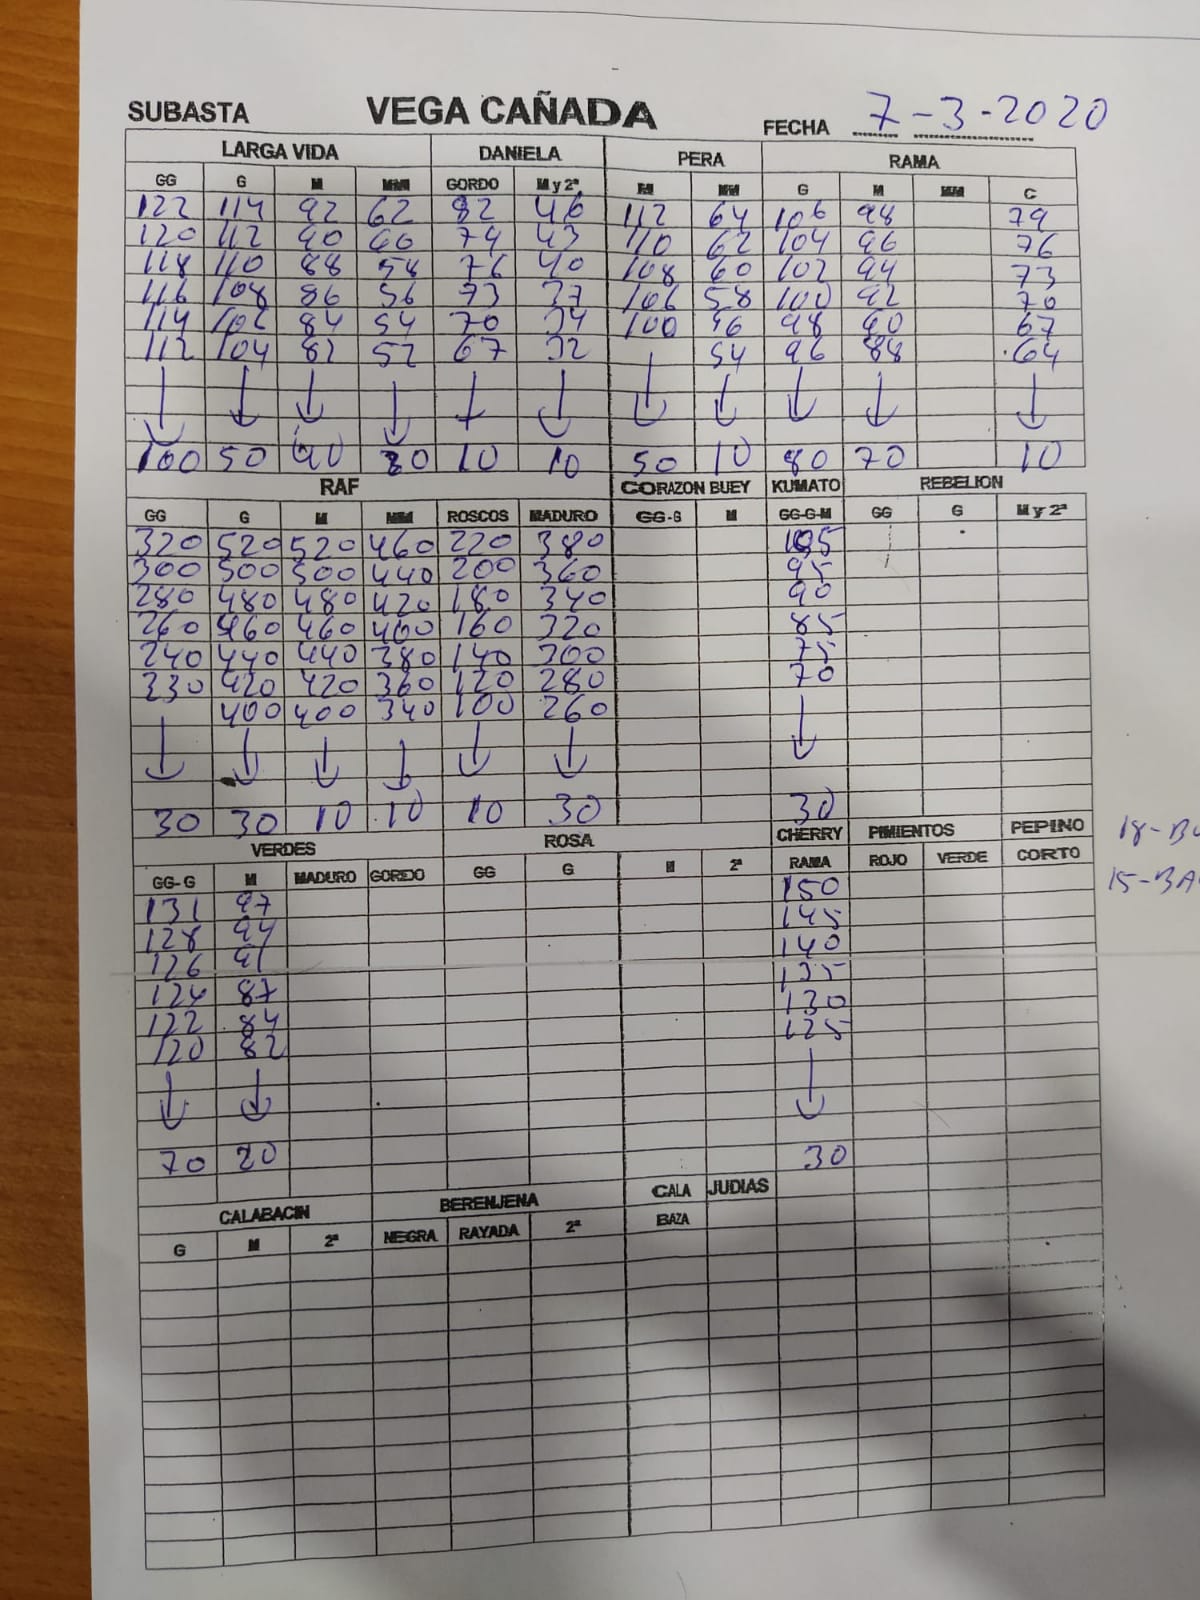 SUBASTA VEGA CAÑADA FECHA 7-3-2020
LARGA VIDA DANIELA PERA RAMA
GG G M MM GORDO M y 2ª M MM G M MM C
122 114 92 62 82 46 112 64 106 98 79
120 112 90 60 79 43 110 62 104 96 76
118 110 88 58 76 40 108 60 102 94 73
116 108 86 56 73 37 106 58 100 92 70
114 106 84 54 70 34 100 56 98 90 67
112 104 82 52 67 32 54 96 88 64
100 50 40 30 10 10 50 10 80 70 10
RAF CORAZON BUEY KUMATO REBELION
GG G M MM ROSCOS MADURO GG-G M GG-G-M GG G M y 2ª
320 520 520 460 220 380 105
300 500 500 440 200 360 95
280 480 480 420 180 340 90
260 460 460 400 160 320 85
240 440 440 380 140 300 75
230 420 420 360 120 280 70
400 400 340 100 260
30 30 10 10 10 30 30
VERDES ROSA CHERRY PIMIENTOS PEPINO
GG-G M MADURO GORDO GG G M 2ª RAMA ROJO VERDE CORTO
131 97 150
128 94 145
126 91 140
124 87 135
122 84 130
120 82 125
70 20 30
CALABACIN BERENJENA CALA JUDIAS
G M 2ª NEGRA RAYADA 2ª BAZA
18-
15-BA